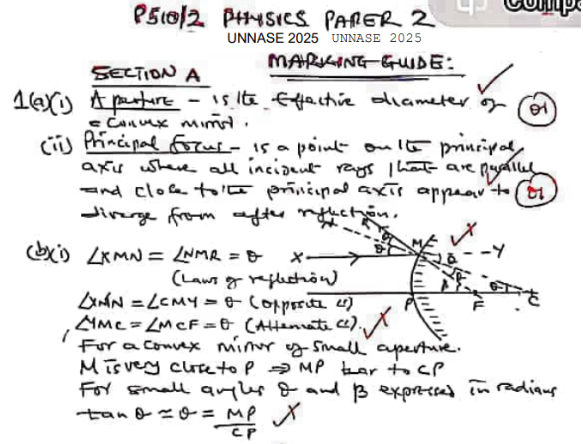 P510/2 PHYSICS PAPER 2
UNNASE 2025 UNNASE 2025
MARKING GUIDE:
SECTION A
1(a)(i) Aperture – is the effective diameter of
a convex mirror. 01
(ii) Principal focus – is a point on the principal
axis where all incident rays that are parallel
and close to the principal axis appear to 01
diverge from after reflection.
(b)(i) ∠XMN = ∠NMR = θ
(Laws of reflection)
X M Y
P F C
∠XMN = ∠CMY = θ (opposite ∠s)
∠YMC = ∠MCF = θ (Alternate ∠s).
For a convex mirror of small aperture.
M is very close to P ⇒ MP to CP
For small angles θ and β expressed in radians
tan θ ≈ θ = MP
CP